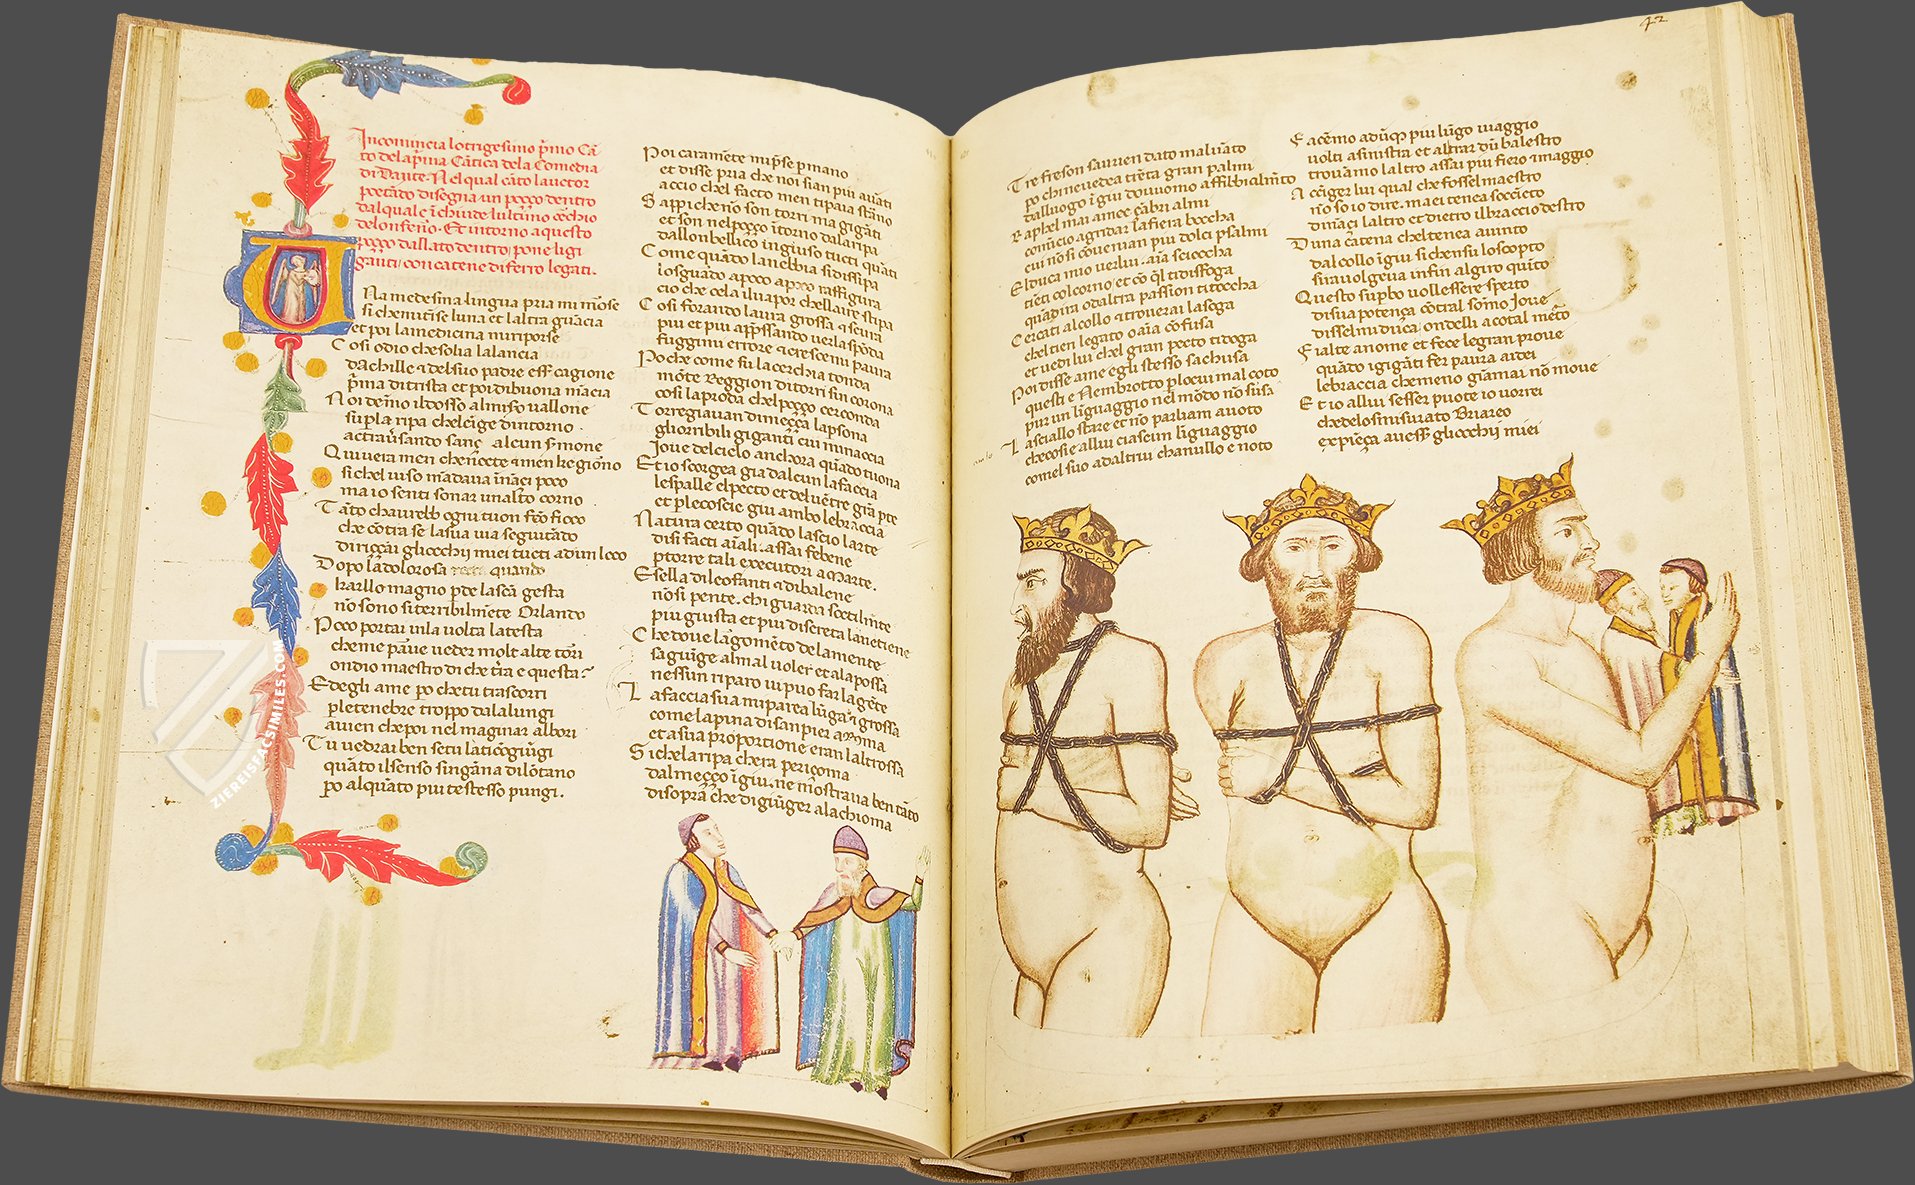 Incomincia lo trigesimo p̃mo Cã
to de la p̃ma Cãtica de la Comedia
di Dante. Nel qual cãto lauctor
poetãdo disegna un poço dentro
dal quale ĩchiude lultimo c̃chio
de lonferño. Et intorno a questo
poço dallato dentro, pone li gi
ganti, con catene di ferro legati.
Una medesma lingua pria mi mõse
si che mi tĩse luna et laltra guãcia
et poi la medicina mi riporse
Cosi odio che solia la lancia
dachille ⁊ del suo padre eẽ cagione
p̃ma di trista et poi di buona mãcia
Noi demo il dosso al miso uallone
su p la ripa chel cĩge dintorno
attrau̾sando sanç alcun s̾mone
Quiui era men che nocte ⁊ men he giorno
si chel uiso mãdaua ĩnãçi poco
ma io senti sonar un alto corno
Tãto chaurebb ogni tuon fc̃o fioco
che cõtra se la sua uia seguitãdo
diriççai gliocchij miei tucti ad un loco
Dopo la dolorosa quando
karllo magno pde la sc̃a gesta
nõ sono si terribilm̃ete Orlando
Poco portai in la uolta la testa
che me parue ueder molt alte torri
ondio maestro di che t̾ra e questa
Ed egli a me po che tu trascorri
p le tenebre troppo da la lungi
auien che poi nel maginar abbori
Tu uedrai ben se tu la ti cõgiũgi
quãto il senso singãna di lõtano
po alquãto piu te stesso pungi.
Poi caram̃ete mi p̃se p mano
et disse pria che noi sian piu auãti
accio chel facto men ti paia strano
Sappi che nõ son torri ma gigãti
et son nel poço ĩtorno da la ripa
dallonbellico ingiuso tucti quãti
Come quãdo la nebbia si dissipa
lo sguãdo apoco apoco raffigura
cio che cela il uapor che llaire stipa
Cosi forando laura grossa ⁊ scura
piu et piu app̃ssando uer la spõda
fuggimi errore ⁊ crescemi paura
Po che come su la cerchia tonda
mõte Reggion di torri si n corona
cosi la proda chel poço circonda
Torregiauan di meçça la psona
gli orribili giganti cui minaccia
Joue del cielo anchora quãdo tuona
Et io scorgea gia dalcun la faccia
le spalle el pecto et del uẽtre grã pte
et p le coscie giu ambo le braccia
Natura certo quãdo lascio larte
di si facti aĩali. assai fe bene
p torre tali executori a Marte.
E sella di leofanti ⁊ di balene
nõ si pente. chi guarda soctilm̃te
piu giusta et piu discreta la ne tiene
Che doue largom̃eto de la mente
sagiũge al mal uoler et a la possa
nessun riparo ui puo far la gẽte
La faccia sua mi parea lũga ⁊ grossa
come la pina di san pier a Roma
et a sua proportione eran laltrossa
Si che la ripa chera periçoma
dal meçço ĩ giu. ne mostraua ben tãto
di sopra che di giũger a la chioma
42
Tre freson sauuen dato mal uãto
po chi ne uedea trẽta gran palmi
dal luogo ĩ giu douuomo affibbia l mãto
Raphel mai amec çabi almi
comĩcio a gridar la fiera boccha
cui nõ si cõuenian piu dolci psalmi
El duca mio uer lui. aĩa scioccha
tieti col corno. et cõ q̃l ti disfoga
quãdira od altra passion ti toccha
Cercati al collo ⁊ trouerai la sega
chel tien legato o aĩa cõfusa
et uedi lui chel gran pecto ti doga
Poi disse a me egli stesso sachusa
questi e Nembrotto p lo cui mal coto
pur un lĩguaggio nel mõdo nõ susa
Lasciallo stare et nõ parliam a uoto
che cosi e allui ciascun lĩguaggio
comel suo ad altrui cha nullo e noto
Facẽmo adũq̃ piu lũgo uiaggio
uolti a sinistra et al trar dũ balestro
trouãmo laltro assai piu fiero ⁊ maggio
A cĩger lui qual che fossel maestro
nõ so io dire. ma ei tenea soccĩcto
dinãçi laltro et dietro il braccio destro
Duna catena chel tenea auinto
dal collo ĩ giu si chensu lo scopto
si rauolgeua infin al giro quĩto
Questo sup̃bo uollessere sperto
di sua potença cõtral som̃o Joue
dissel mi duca. ondelli a cotal m̾to
Fialte a nome et fece le gran proue
quãdo i gigãti fer paura ai dei
le braccia che meno giamai nõ moue
Et io allui sesser puote io uorrei
che de lo smisurato Briareo
expiẽça auess̾ gli occhij miei
ZIEREISFACSIMILES.COM